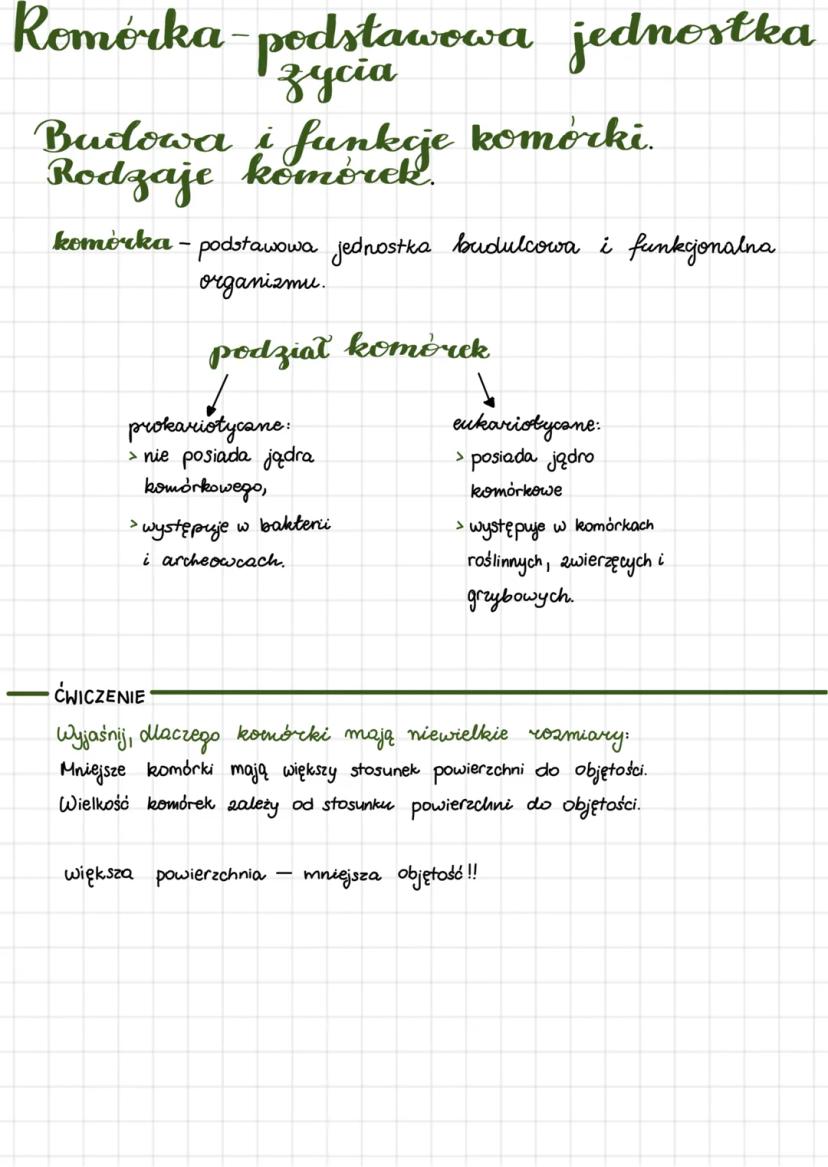 Komórka - podstawowa jednostka
życia
Budowa i funkcje komórki.
Rodzaje komórek.
komórka - podstawowa jednostka budulcowa i funkcjonalna
organizmu.
podział komórek
prokariotyczne:
> nie posiada jądra
komórkowego,
> występuje w bakterii
i archeowcach.
eukariotyczne:
> posiada jądro
komórkowe
> występuje w komórkach
roślinnych, zwierzęcych i
grzybowych.
ĆWICZENIE
Wyjaśnij, dlaczego komórki mają niewielkie rozmiary:
Mniejsze komórki mają większy stosunek powierzchni do objętości.
Wielkość komórek zależy od stosunku powierzchni do objętości.
większa powierzchnia — mniejsza objętość!!